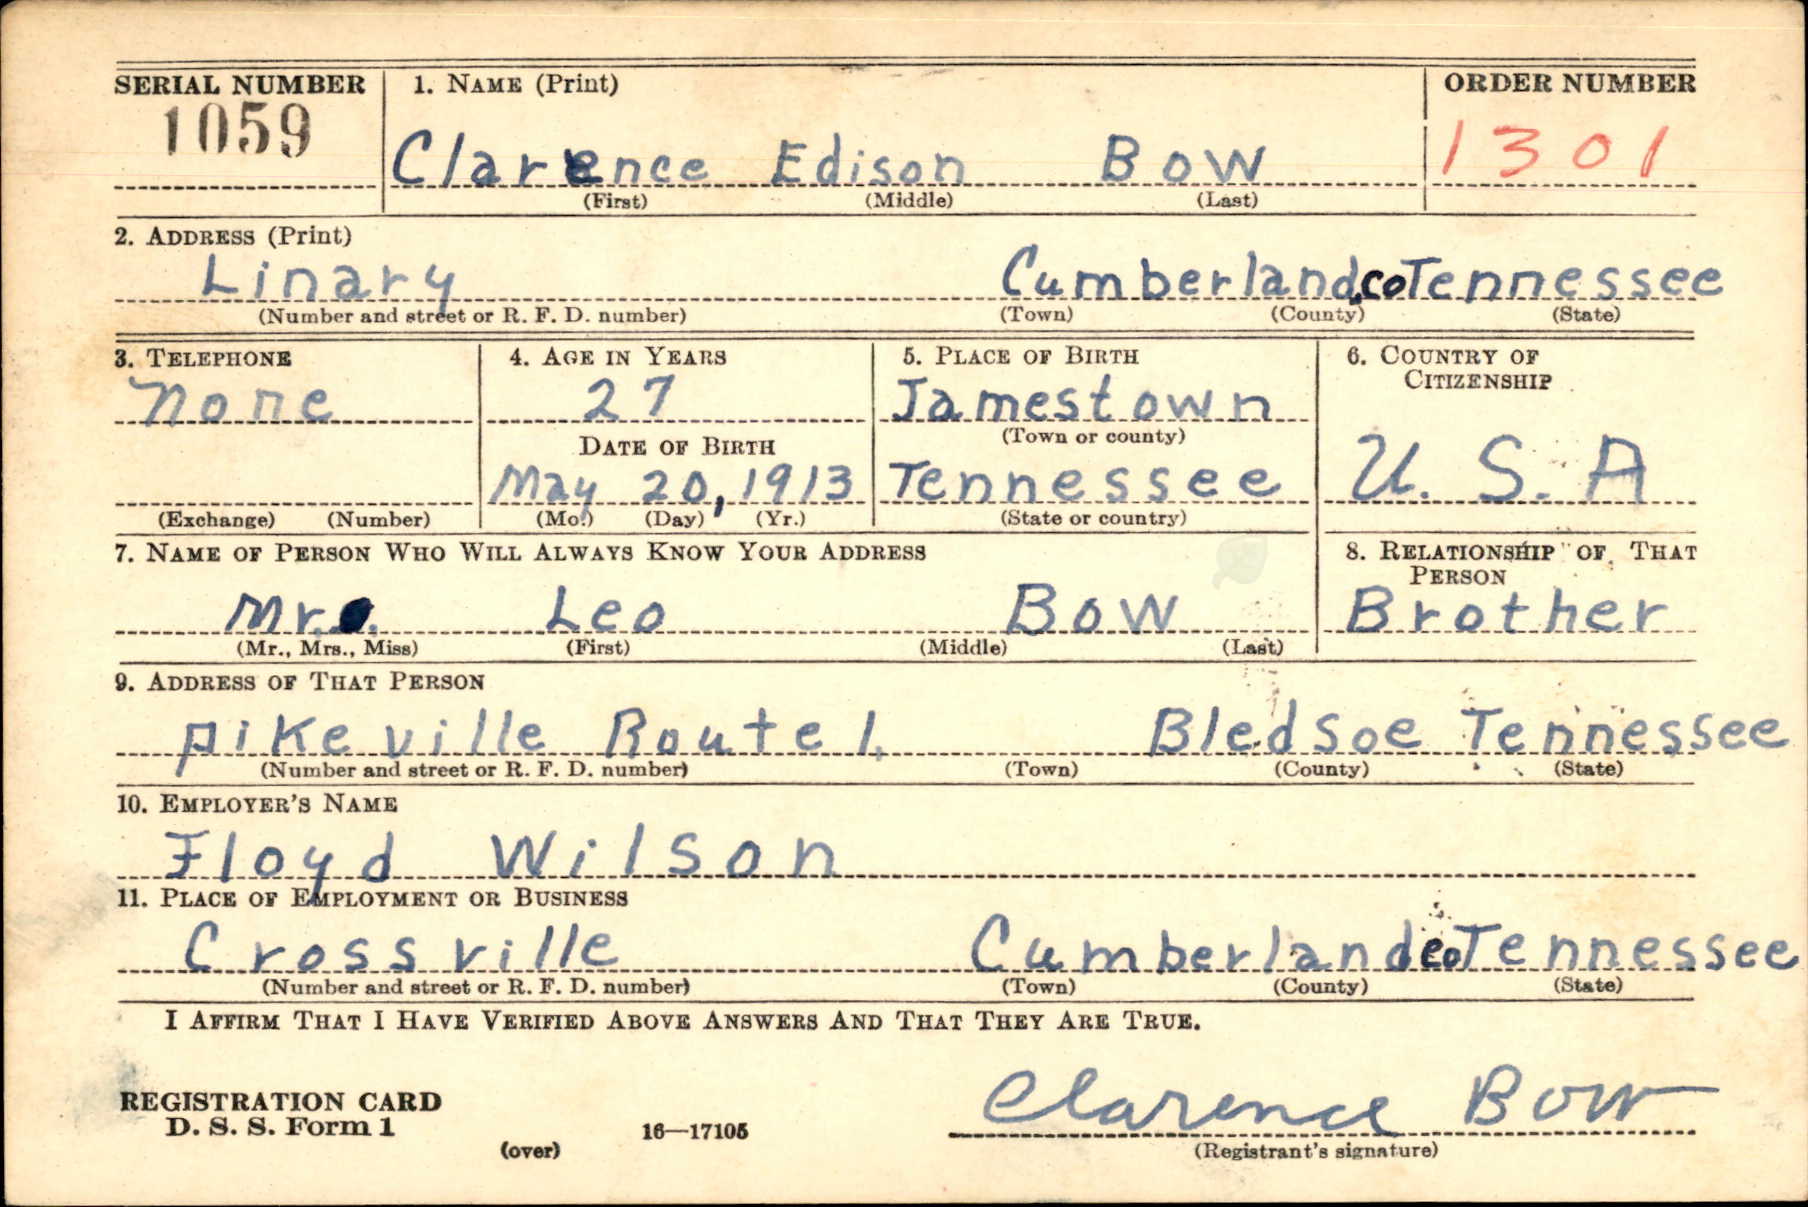 SERIAL NUMBER 1. NAME (Print) ORDER NUMBER
1059 Clarence Edison Bow 1301
(First) (Middle) (Last)
2. ADDRESS (Print)
Linary Cumberland,co Tennessee
(Number and street or R. F. D. number) (Town) (County) (State)
3. TELEPHONE 4. AGE IN YEARS 5. PLACE OF BIRTH 6. COUNTRY OF
CITIZENSHIP
None 27 Jamestown
(Town or county)
DATE OF BIRTH
May 20, 1913 Tennessee U. S. A
(Exchange) (Number) (Mo.) (Day) (Yr.) (State or country)
7. NAME OF PERSON WHO WILL ALWAYS KNOW YOUR ADDRESS 8. RELATIONSHIP OF THAT
PERSON
Mr. Leo Bow Brother
(Mr., Mrs., Miss) (First) (Middle) (Last)
9. ADDRESS OF THAT PERSON
pikeville Route 1. Bledsoe Tennessee
(Number and street or R. F. D. number) (Town) (County) (State)
10. EMPLOYER'S NAME
Floyd Wilson
11. PLACE OF EMPLOYMENT OR BUSINESS
Crossville Cumberland co Tennessee
(Number and street or R. F. D. number) (Town) (County) (State)
I AFFIRM THAT I HAVE VERIFIED ABOVE ANSWERS AND THAT THEY ARE TRUE.
REGISTRATION CARD Clarence Bow
D. S. S. Form 1 16—17105
(over) (Registrant's signature)